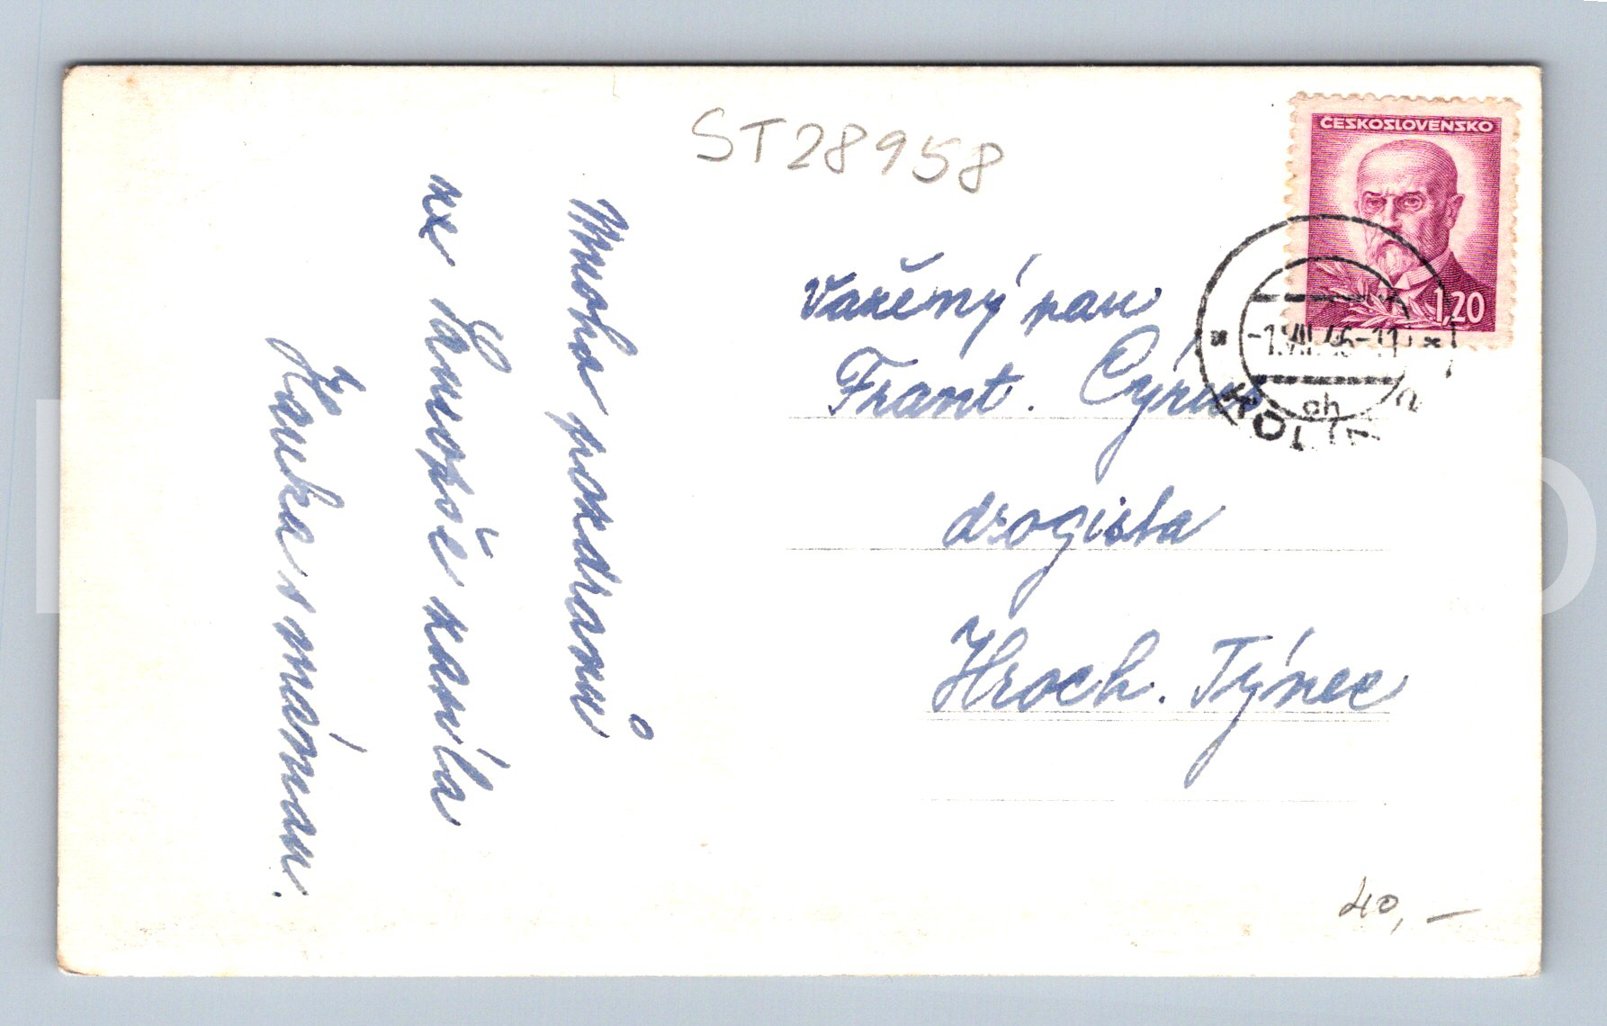 ST28958
ČESKOSLOVENSKO
1,20
-1.VII.46-11
ch
KOLÍN
Vážený pan
Frant. Cýrus
drogista
Hroch. Týnec
Mnoho pozdravů
ze
zasílá
Hanka s mámou.
40,-